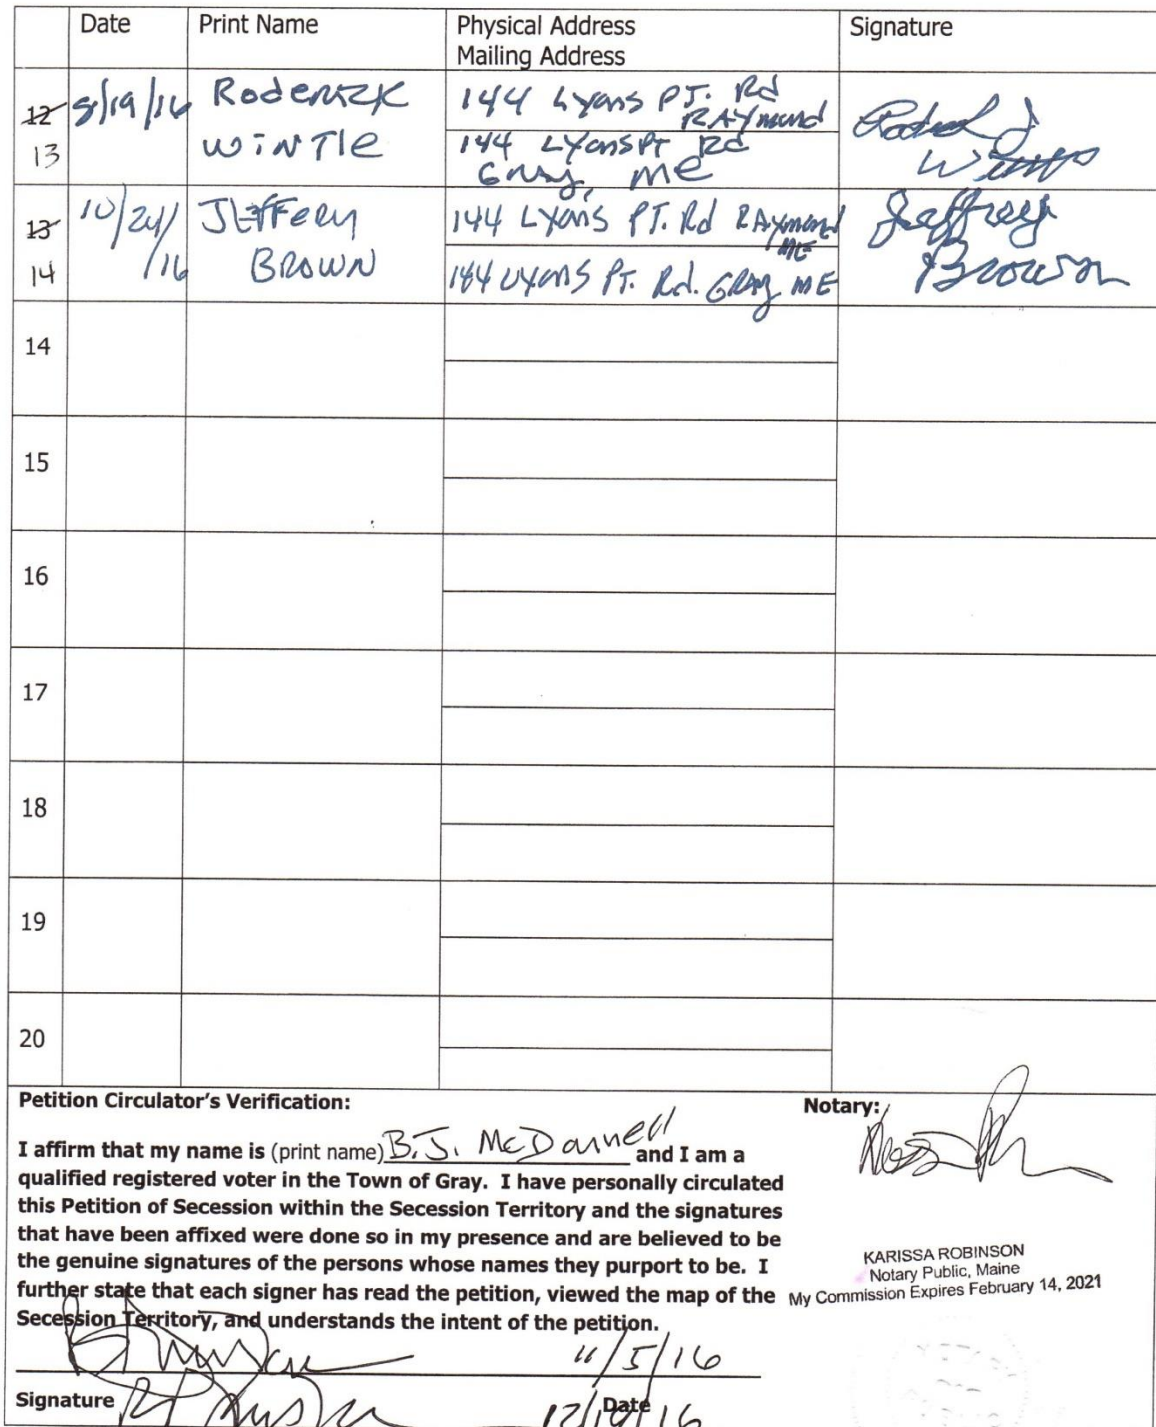 Date Print Name Physical Address Signature
Mailing Address
12 8/19/16 Roderick 144 Lyons PT. Rd
RAYmond
13 WiNTle 144 LYons PT Rd
Gray, ME
13 10/24/ JEFFery 144 LYons PT. Rd RAymond Jeffrey
ME
14 /16 BROWN 144 LYons PT. Rd. GRAY ME Brown
14
15
16
17
18
19
20
Petition Circulator's Verification: Notary:
I affirm that my name is (print name) B.J. McDonnell and I am a
qualified registered voter in the Town of Gray. I have personally circulated
this Petition of Secession within the Secession Territory and the signatures
that have been affixed were done so in my presence and are believed to be
the genuine signatures of the persons whose names they purport to be. I
further state that each signer has read the petition, viewed the map of the
Secession Territory, and understands the intent of the petition.
KARISSA ROBINSON
Notary Public, Maine
My Commission Expires February 14, 2021
11/5/16
Signature Date